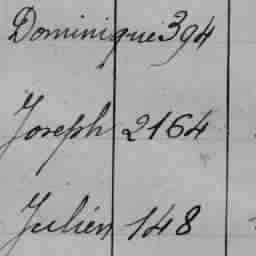 Dominique 394
Joseph 2164
Julien 148